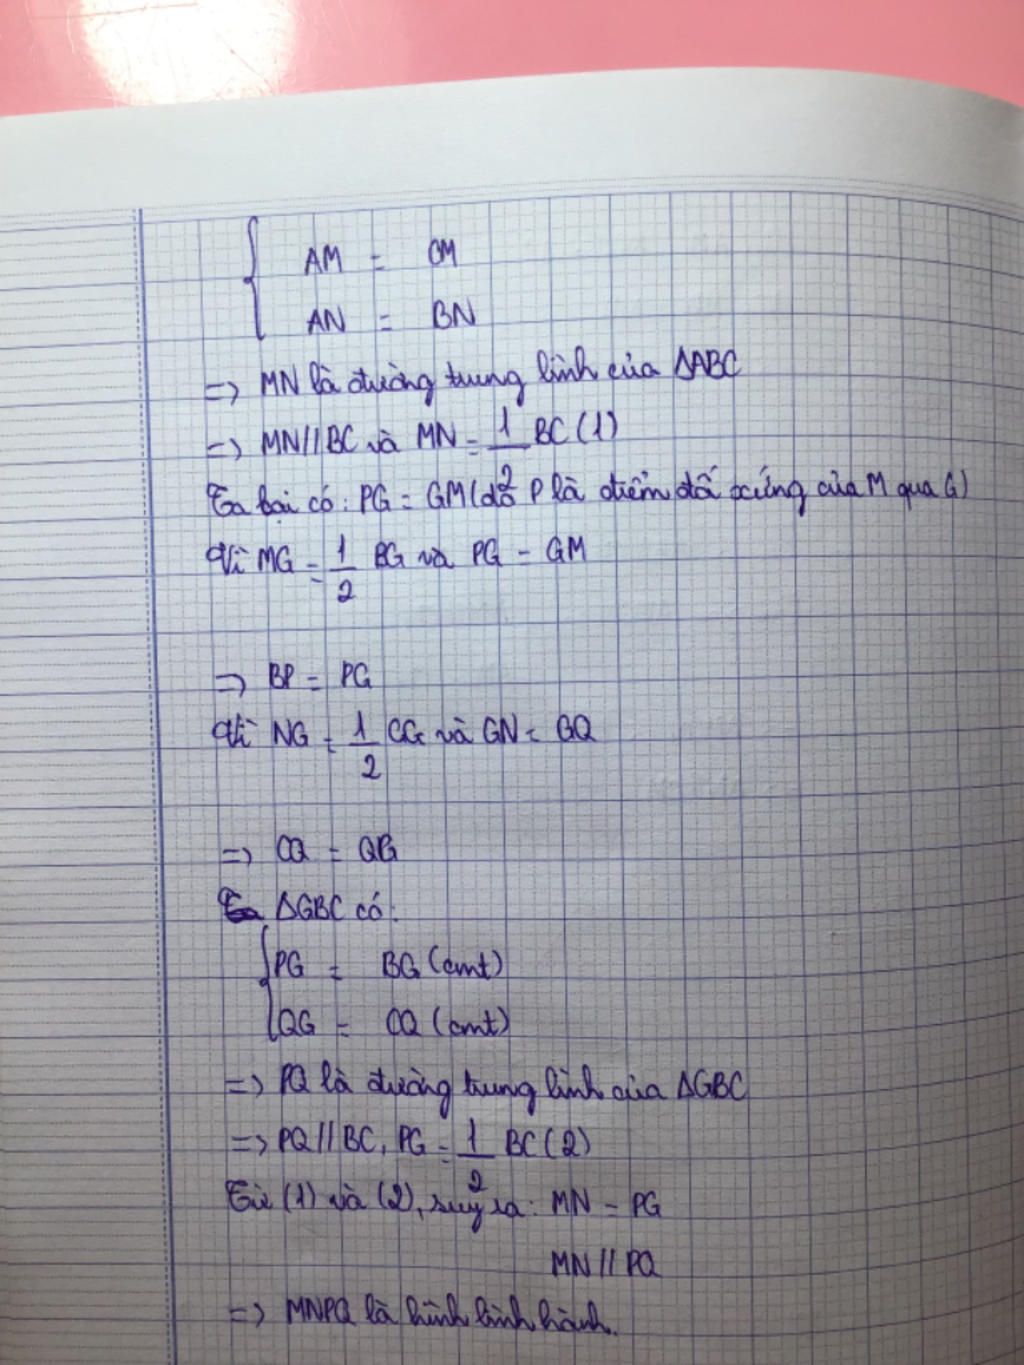 AM = CM
AN = BN
=> MN là đường trung bình của ΔABC
=> MN//BC và MN = 1/2 BC (1)
Ta lại có: PG = GM (do P là điểm đố xứng của M qua G)
Vì MG = 1/2 BG và PG = GM
=> BP = PG
Vì NG = 1/2 CG và GN = GQ
=> CQ = QG
ΔGBC có:
PG = BG (cmt)
QG = CQ (cmt)
=> PQ là đường trung bình của ΔGBC
=> PQ//BC, PG = 1/2 BC (2)
Từ (1) và (2), suy ra: MN = PG
MN // PQ
=> MNPQ là hình bình hành.